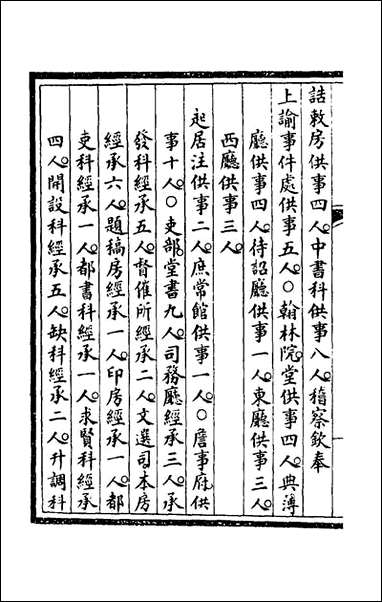 誥敕房供事四人中書科供事八人稽察欽奉
上諭事件處供事五人○翰林院堂供事四人典簿
廳供事四人待詔廳供事一人東廳供事三人
西廳供事三人
起居注供事二人庶常館供事一人○詹事府供
事十人○吏部堂書九人司務廳經承三人承
發科經承五人督催所經承二人文選司本房
經承六人題稿房經承一人印房經承一人都
吏科經承一人都書科經承一人求賢科經承
四人開設科經承五人缺科經承二人升調科